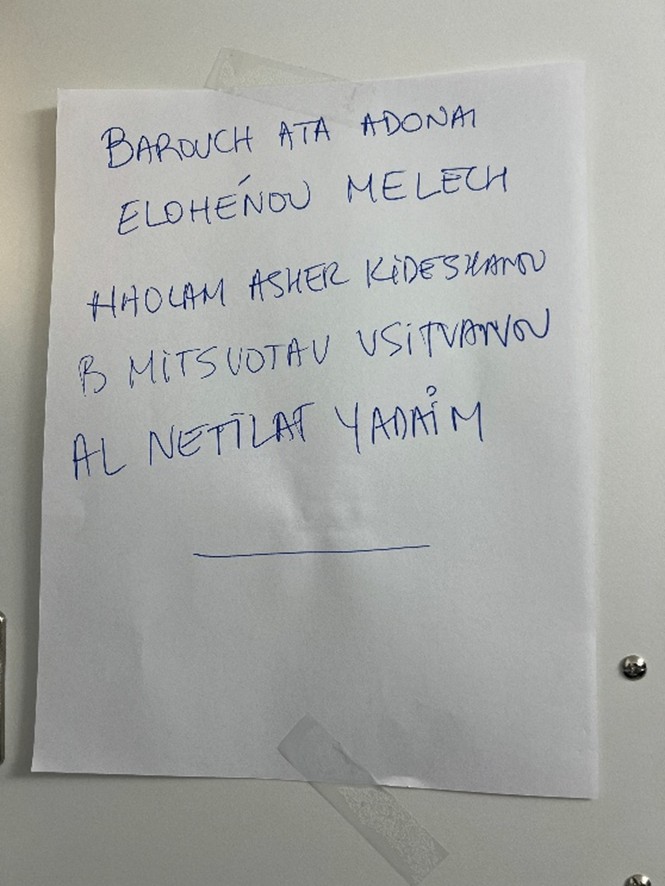 BAROUCH ATA ADONAI
ELOHÉNOU MELECH
HHOLAM ASHER KIDESHANOU
B MITSVOTAV VSITVANOU
AL NETILAT YADAÏM